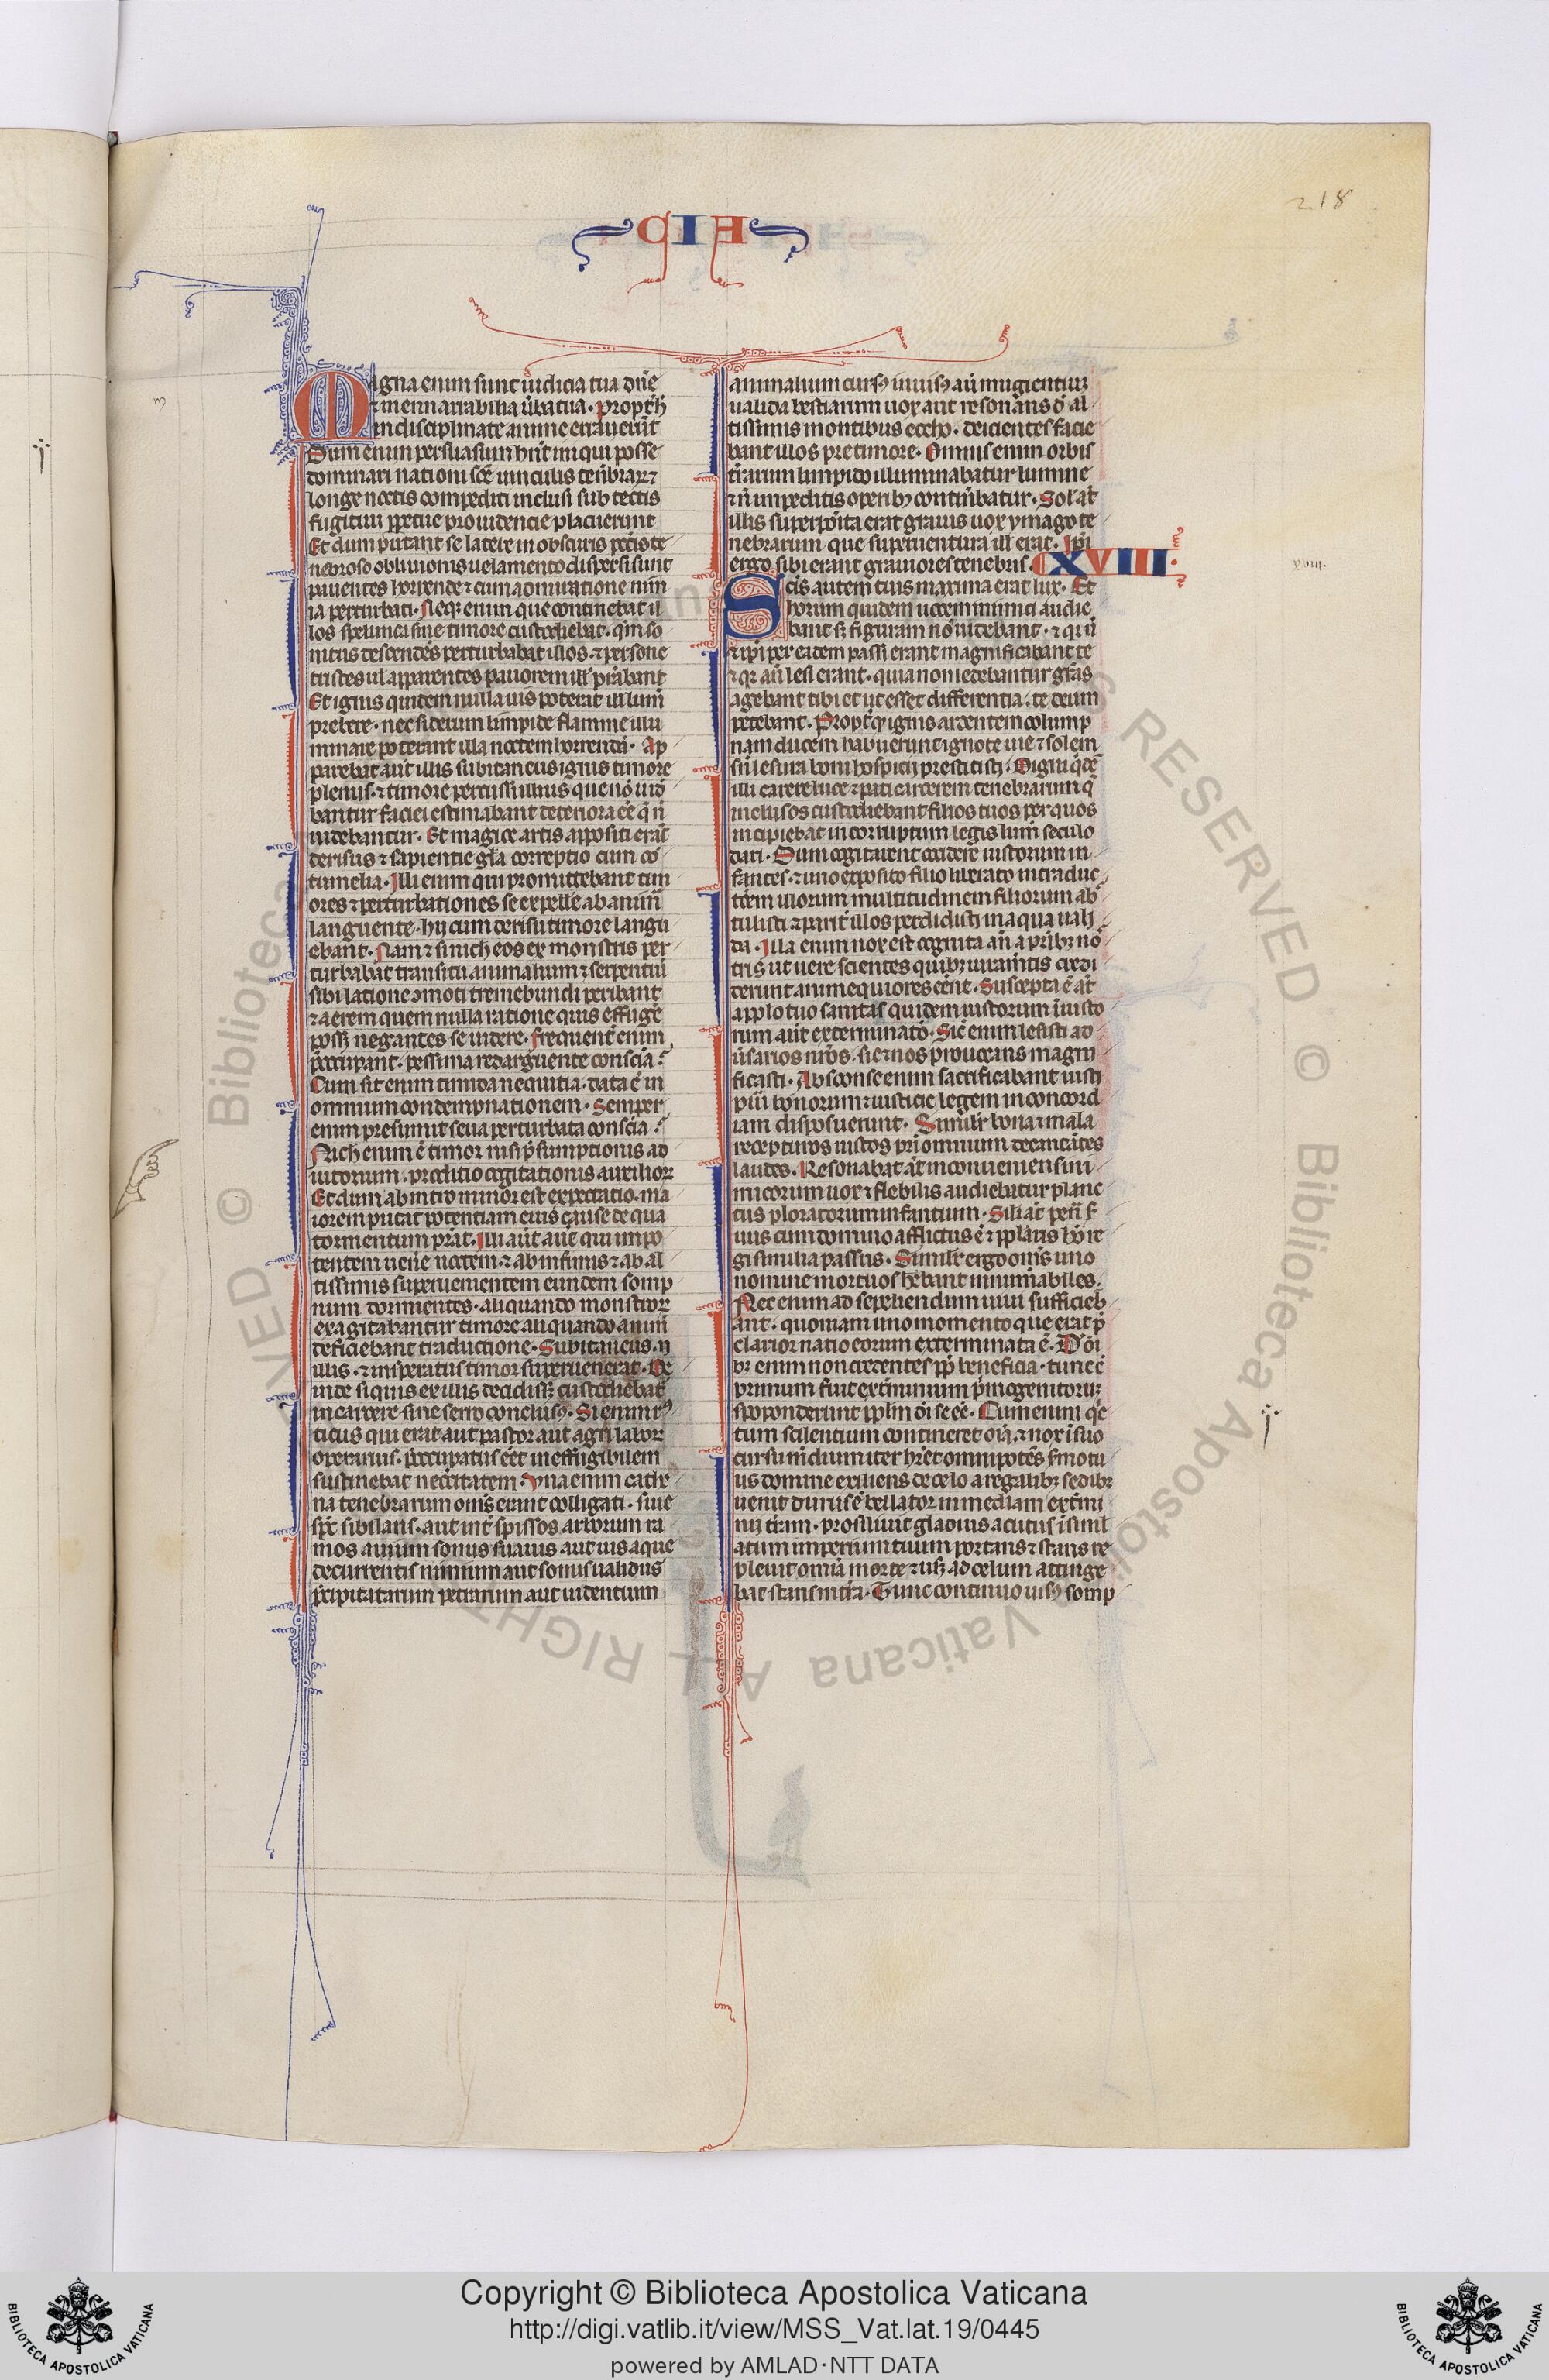 218
CIA
Magna enim sunt iudicia tua dn̄e
⁊ inenarrabilia ũba tua. Propt̃ h̾
indisciplinate anime errauer̃t
Dum enim persuasum hn̄t iniqui posse
dominari nationi scē uinculis teñbraꝝ ⁊
longe noctis compediti inclusi sub tectis
fugitiui ꝑpetue prouidencie placuerunt
Et dum putant se latere in obscuris pc̄c̄is te
nebroso obliuionis uelamento dispersi sunt
pauentes horrende ⁊ cum admiratione nim
ia perturbati. Neqꝫ enim que continebat il
los spelunca sine timore custodiebat. qm̄ so
nitus descendēs perturbabat illos. ⁊ persone
tristes ill̾ apparentes pauorem ill̾ prābant
Et ignis quidem nulla uis poterat ill̾ lum̄
prebere. nec siderum limpide flamme illu
minare poterant illā noctem horrendā. Ap
parebat aūt illis subitaneus ignis timore
plenus. ⁊ timore percussi illius que nō uid̾
bantur faciei estimabant deteriora eē q̄ ñ
uidebantur. Et magice artis appositi erāt
derisus ⁊ sapientie gl̄a correptio cum cō
tumelia. Illi enim qui promittebant tim
ores ⁊ perturbationes se expelle ab anim̄
languente. hij cum derisu timore langu
ebant. Nam ⁊ si nich̾ eos ex monstris per
turbabat transitu animalium ⁊ serpentiū
sibilatione ꝯmoti tremebundi peribant
⁊ aerem quem nulla ratione quis effuge̾
possꝫ negantes se uidere. frequent̾ enim
p̄occupant. pessima redarguente conscīa.
Cum sit enim timida nequitia. data ē in
omnium condempnationem. Semper
enim presumit seua perturbata conscīa.
Nich̾ enim ē timor nisi p̄sumptionis ad
iutorium. proditio cogitationis auxilioꝝ
Et dum ab intro minor est expectatio. ma
iorem putat potentiam eius cause de qua
tormentum prāt. Illi aūt aūt qui impo
tentem uen̾e noctem. ⁊ ab infimis ⁊ ab al
tissimis superuenientem eundem somp
num dormientes. aliquando monstroꝝ
exagitabantur timore aliquando animi
deficiebant traductione. Subitaneus. n̄
illis. ⁊ insperatus timor superuenerat. De
inde si quis ex illis decidissꝫ custodiebat̾
in carcere sine ferro conclusꝰ. Si enim rꝰ
ticus qui erat aut pastor aut agri laboꝝ
operarius. p̄occupatus eēt ineffugibilem
sustinebat necc̄itatem. Vna enim cathe
na tenebrarum om̄s erant colligati. siue
sp̄c sibilans. aut int̾ spissos arborum ra
mos auium sonus suauis. aut uis aque
decurrentis nimium aut sonus ualidus
p̄cipitatarum petrarum aut uidentium
animalium cursꝰ inuisꝰ aū mugientiuꝫ
ualida bestiarum uox aut resonans d̄ al
tissimis montibus eccho. deicientes facie
bant illos pre timore. Omnis enim orbis
t̾rarum limpido illuminabatur lumine
⁊ ñ impeditis operibꝫ contin̾batur. Sol̾ āt
illis superpoita erat grauis nox ymago te
nebrarum que superuentura ill̾ erat. Ip̄i
ergo sibi erant grauiores tenebris. CXVIII.
Scīs autem tuis maxima erat lux. Et
horum quidem uocem inimici audie
bant sꝫ figuram nō uidebant. ⁊ qꝛ ñ
⁊ ip̄i per eadem passi erant magnificabant te
⁊ qꝛ an̄ lesi erant. quia non ledebantur grās
agebant tibi et ut esset differentia. te deum
petebant. Propt̾ qꝰ ignis ardentem colump
nam ducem habuerunt ignote uie ⁊ solem
sn̄ lesura boni hospicij prestitisti. Digni q̄dē
illi carere luce ⁊ pati carcerem tenebrarum q̄
inclusos custodiebant filios tuos per quos
incipiebat incorruptum legis lum̄ seculo
dari. Dum cogitarent occidere iustorum in
fantes. ⁊ uno exposito filio ⁊ liberato in traduc
tōem illorum multitudinem filiorum ab
tulisti ⁊ parit̾ illos perdidisti in aqua uali
da. Illa enim nox est cognita an̄ a pr̄ibꝫ nō
tris ut uere scientes quibꝫ iuram̄tis credi
derunt animequiores eēnt. Suscepta ē āt
a pp̄lo tuo sanitas quidem iustorum ĩiusto
rum aūt exterminatō. Sic̄ enim lesisti ad
ũsarios nr̄os. sic ⁊ nos prouocans magni
ficasti. Absconse enim sacrificabant iusti
pūi bonorum ⁊ iusticie legem in concord
iam disposuerunt. Simil̾r bona ⁊ mala
recepturos iustos pr̄i omnium decantātes
laudes. Resonabat āt inconueniens ini
micorum uox ⁊ flebilis audiebatur planc
tus ploratorum infantium. Sil̄i āt pen̄ s̾
uus cum domino afflictus ē ⁊ pp̄laris hō re
gi similia passus. Simil̾r ergo om̄s uno
nomine mortuos h̾ebant innum̄abiles.
Nec enim ad sepeliendum uiui sufficieb
ant. quoniam uno momento que erat p̄
clarior natio eorum exterminata ē. D̾ ōi
bꝫ enim non credentes ꝓp̄ beneficia. tunc c̄
primum fuit ext̾minium p̄mogenitoruꝫ
spoponderunt pp̄lm̄ dī se eē. Cum enim q̾e
tum scilentium contineret oīa ⁊ nox ĩ suo
cursu mediūm iter h̾ret omnipotēs s̾mo tu
us domine exiliens de celo a regalibꝫ sedibꝫ
uenit durus d̾bellator in mediam ext̾mi
nij t̾ram. prosiliuit gladius acutus ĩsimil
atum imperium tuum portans ⁊ stans re
pleuit omnia morte ⁊ usqꝫ ad celum attinge
bat stans in t̾ra. Tunc continuo uisꝰ somp
xviii.
Copyright © Biblioteca Apostolica Vaticana
http://digi.vatlib.it/view/MSS_Vat.lat.19/0445
powered by AMLAD·NTT DATA
BIBLIOTECA APOSTOLICA VATICANA
BIBLIOTECA APOSTOLICA VATICANA